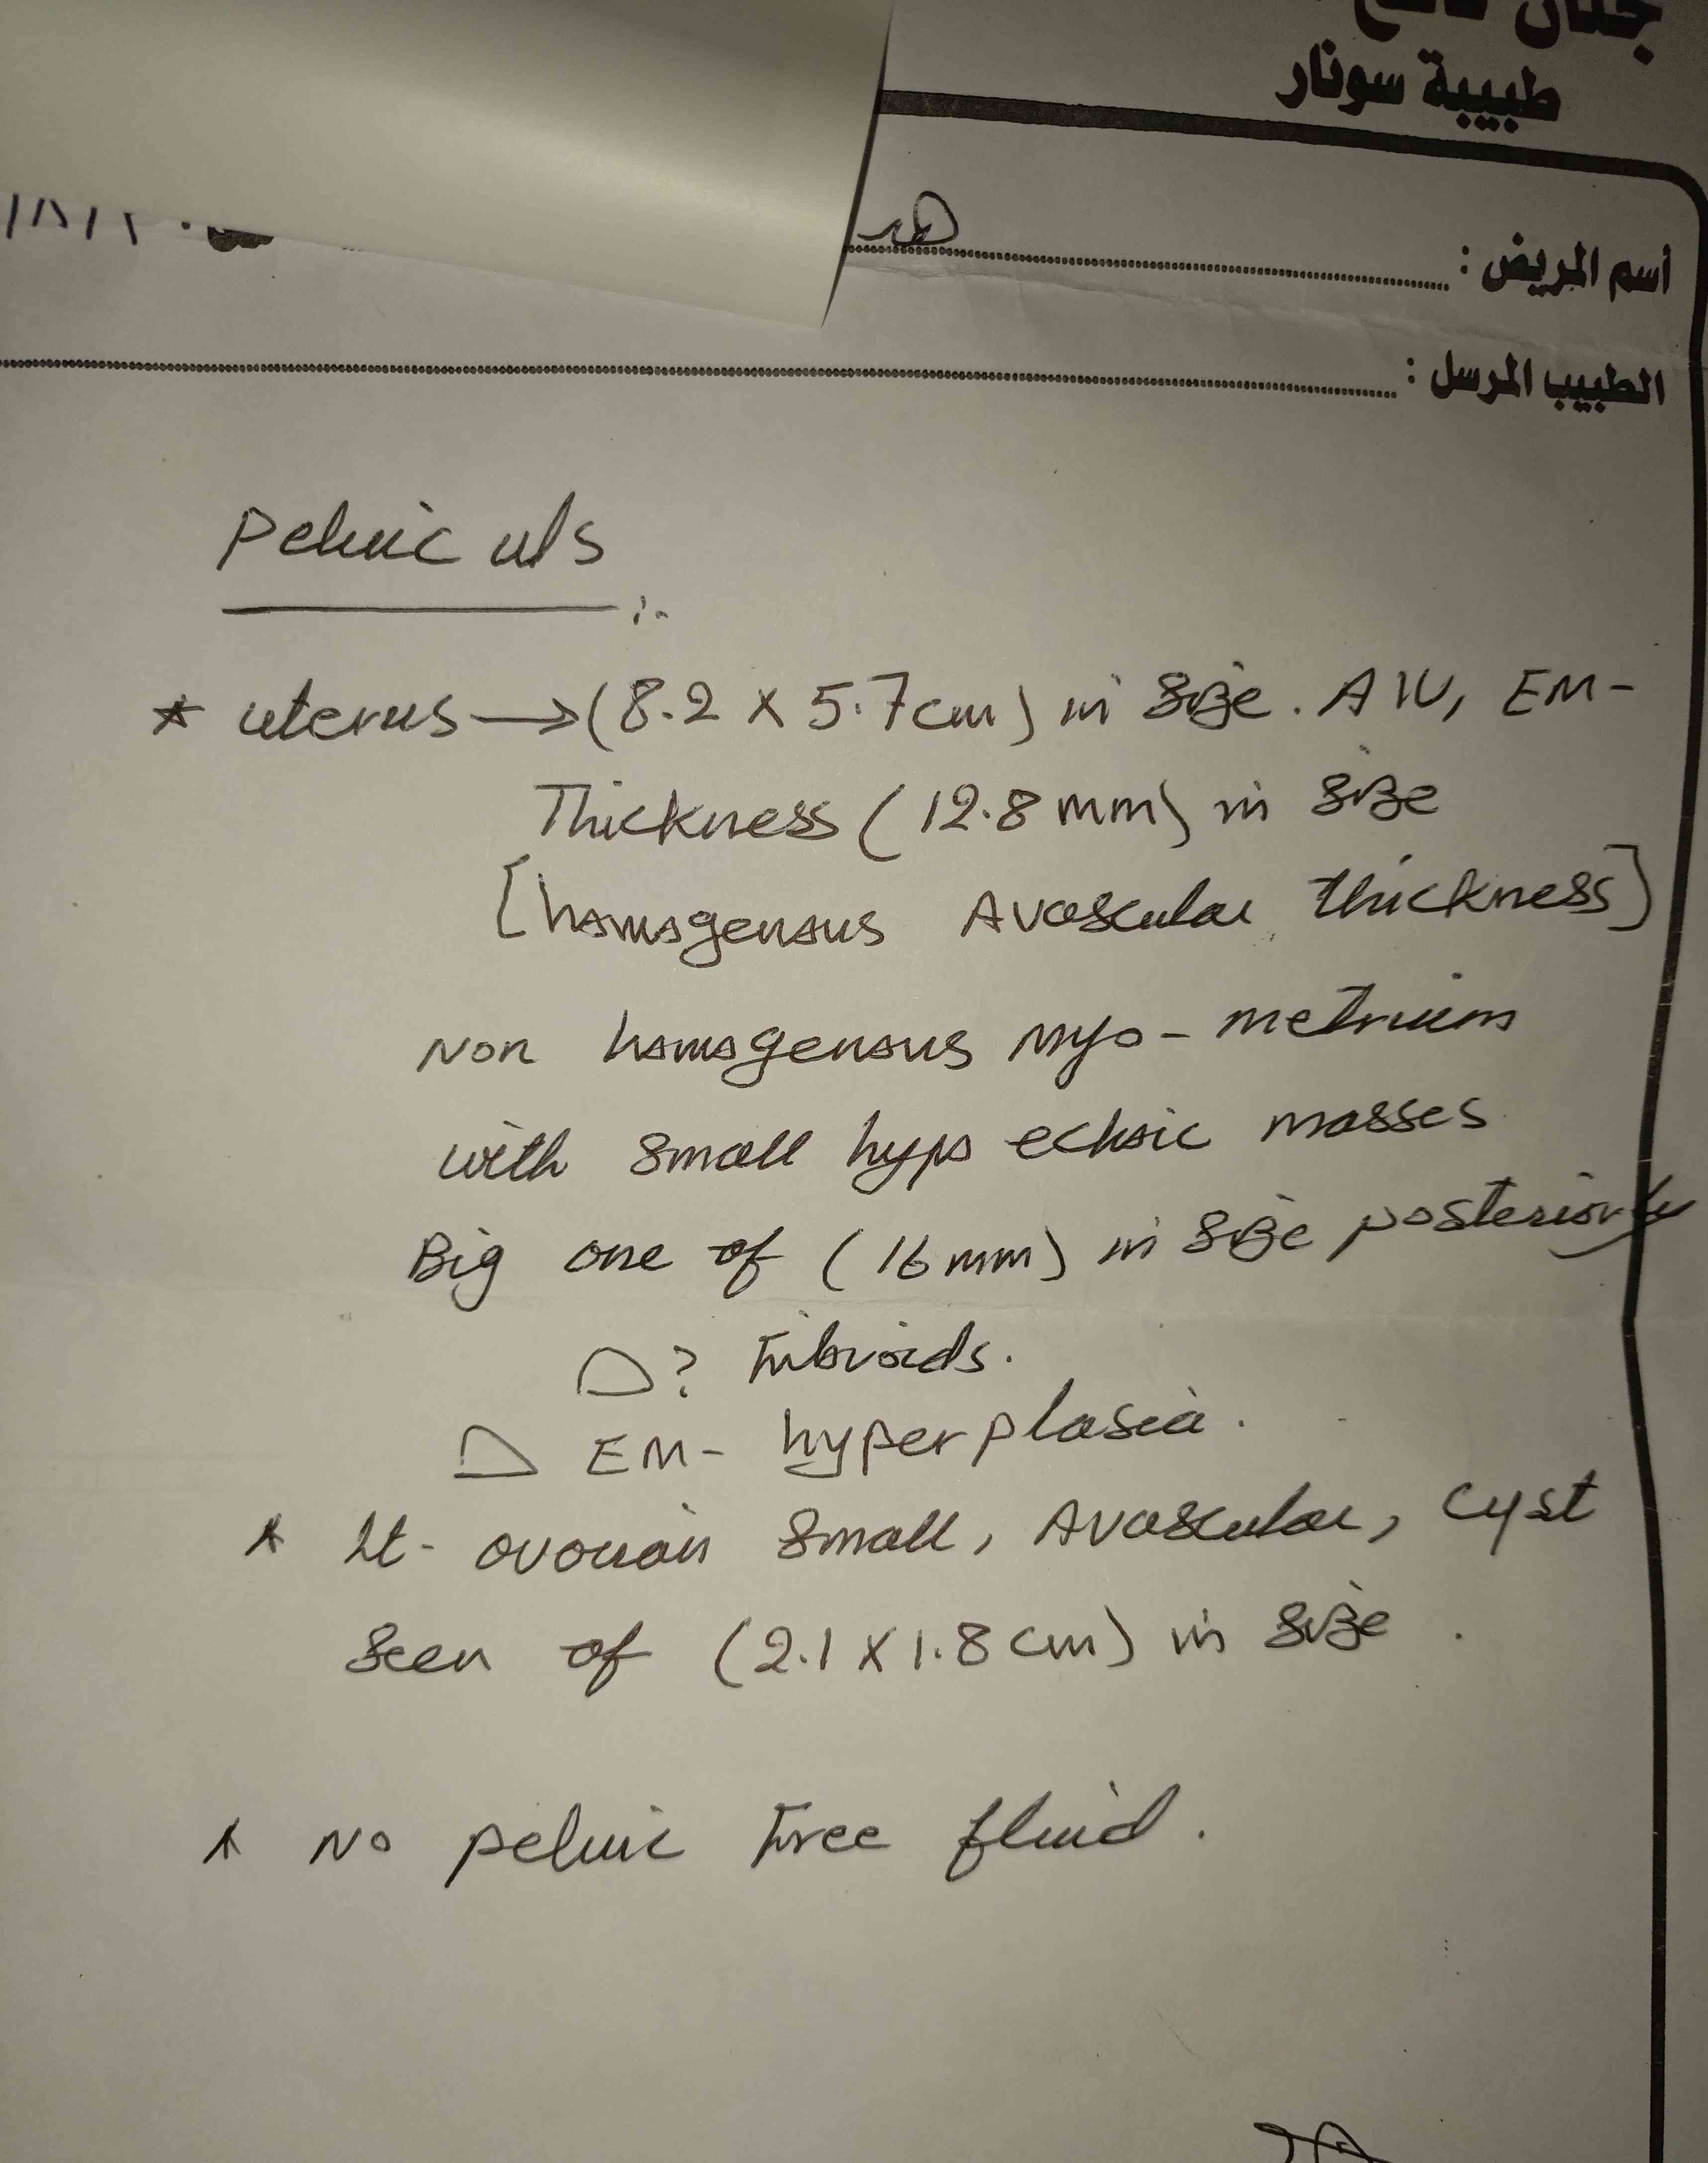 طبيبة سونار
أسم المريض :
الطبيب المرسل :
Pelvic u/s
* uterus → (8.2 x 5.7 cm) in size. AVU, EM-
Thickness (12.8 mm) in size
[homogenous Avascular thickness]
Non homogenous myo-metrium
with small hypo echoic masses
Big one of (16 mm) in size posteriorly
? Fibroids.
EM- hyperplasia.
* Lt- ovarian small, Avascular, cyst
seen of (2.1 x 1.8 cm) in size.
* No pelvic Free fluid.